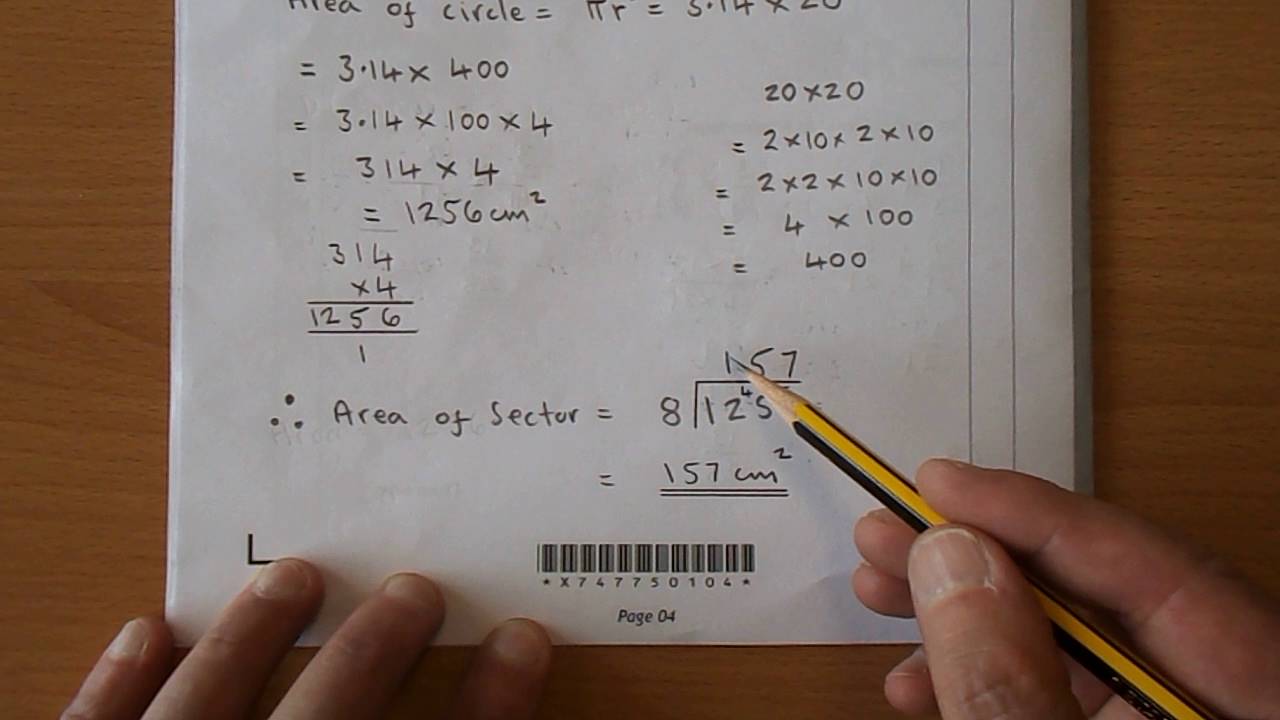 Area of circle = πr² = 3.14 × 20
= 3.14 × 400
= 3.14 × 100 × 4
= 314 × 4
= 1256 cm²
314
×4
1256
1
20 × 20
= 2 × 10 × 2 × 10
= 2 × 2 × 10 × 10
= 4 × 100
= 400
157
∴ Area of Sector = 8 12⁴5
= 157 cm²
*X747750104*
Page 04